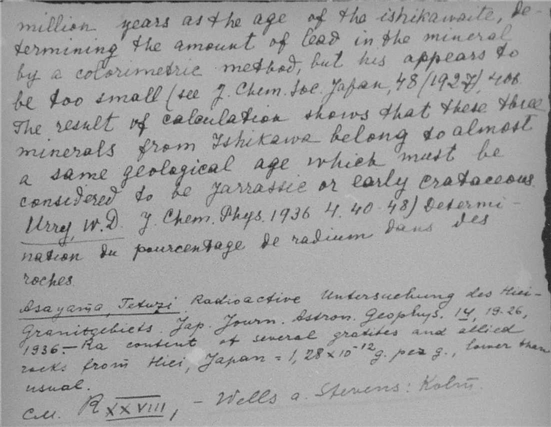 million years as the age of the ishikawaite, de-
termining the amount of lead in the mineral
by a colorimetric method, but his appears to
be too small (see J. Chem. Soc. Japan, 48 (1927), 408.
The result of calculation shows that these three
minerals from Ishikawa belong to almost
a same geological age which must be
considered to be Jarrassic or early crataceous.
Urry, W.D. J. Chem. Phys. 1936 4. 40-48) Determi-
nation du pourcentage de radium dans des
roches.
Asayama, Tetuzi Radioactive Untersuchung des Hiei-
Granitgebiets. Jap. Journ. Astron. Geophys. 14, 19-26,
1936.- Ra content of several granites and allied
rocks from Hiei, Japan = 1,28×10⁻¹² g. per g., lower than
usual.
см. R XXVIII, - Wells a. Stevens: Kolm.